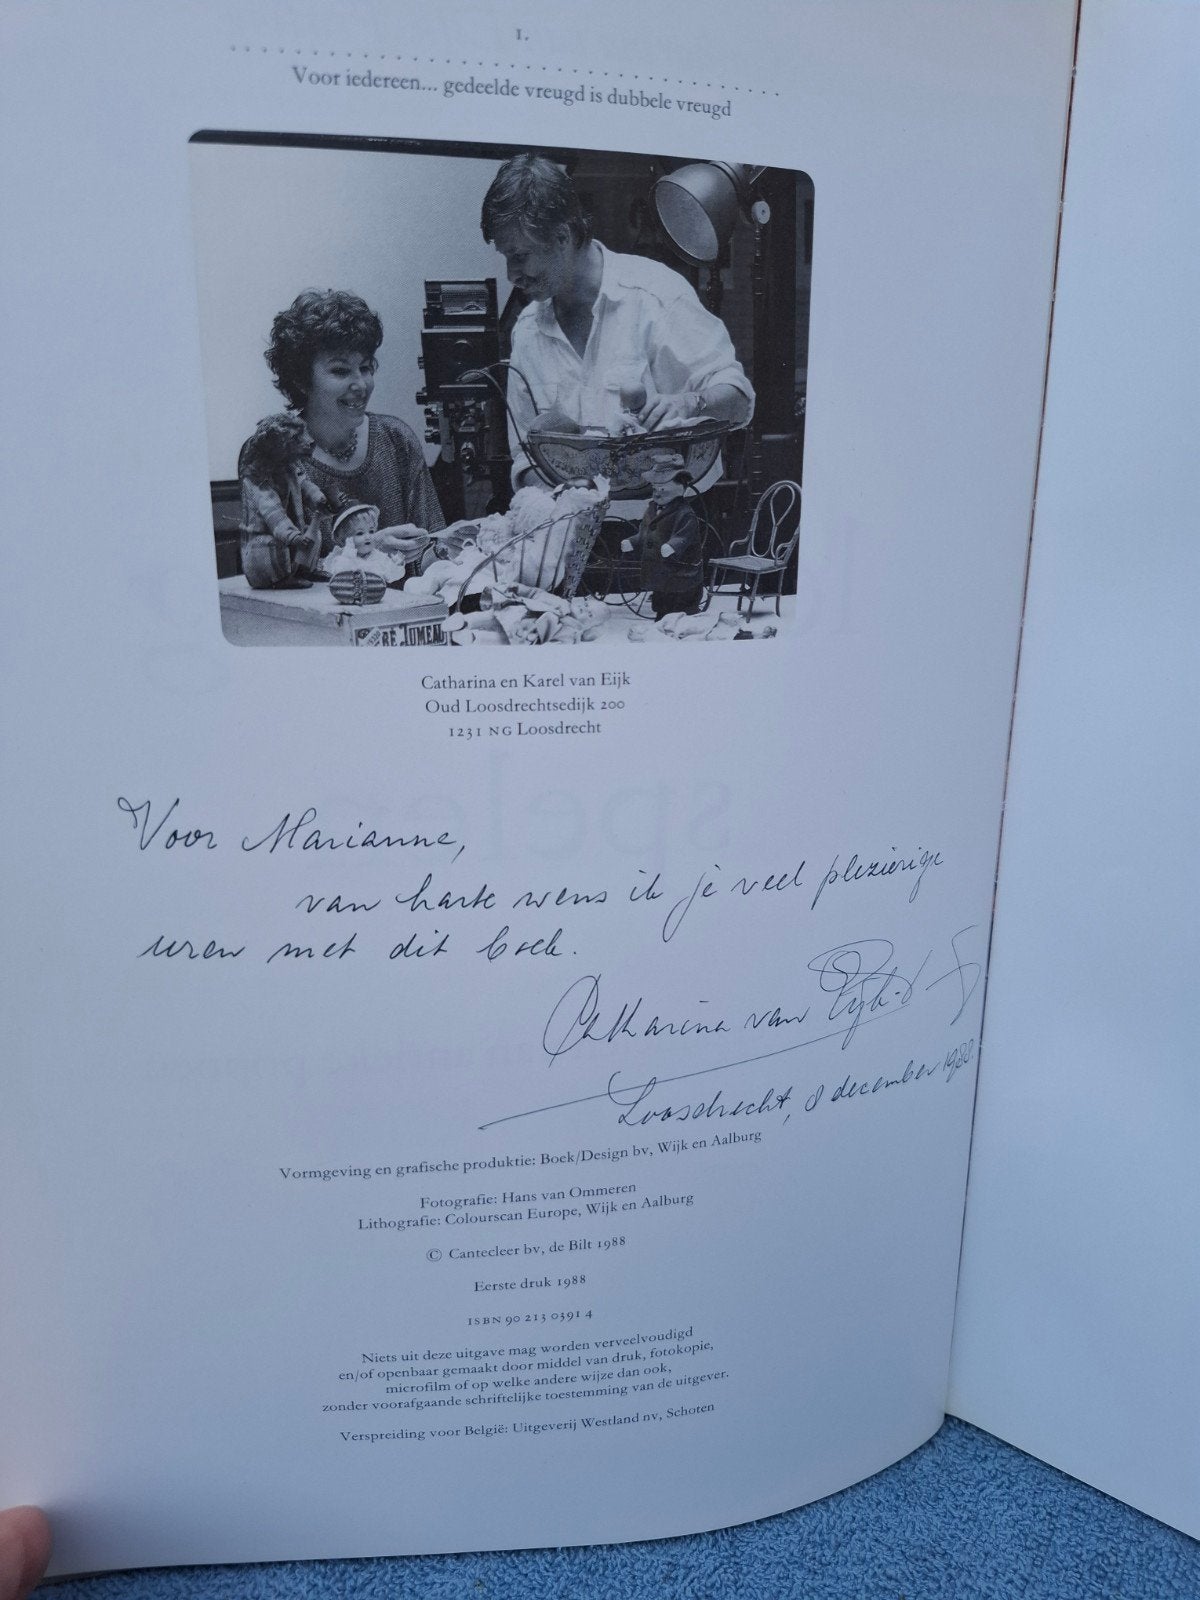 I.
Voor iedereen... gedeelde vreugd is dubbele vreugd
BÉ JUMEAU
Catharina en Karel van Eijk
Oud Loosdrechtsedijk 200
1231 NG Loosdrecht
Voor Marianne,
van harte wens ik je veel plezierige
uren met dit boek.
Catharina van Eijk
Loosdrecht, 8 december 1988.
Vormgeving en grafische produktie: Boek/Design bv, Wijk en Aalburg
Fotografie: Hans van Ommeren
Lithografie: Colourscan Europe, Wijk en Aalburg
© Cantecleer bv, de Bilt 1988
Eerste druk 1988
ISBN 90 213 0391 4
Niets uit deze uitgave mag worden verveelvoudigd
en/of openbaar gemaakt door middel van druk, fotokopie,
microfilm of op welke andere wijze dan ook,
zonder voorafgaande schriftelijke toestemming van de uitgever.
Verspreiding voor België: Uitgeverij Westland nv, Schoten